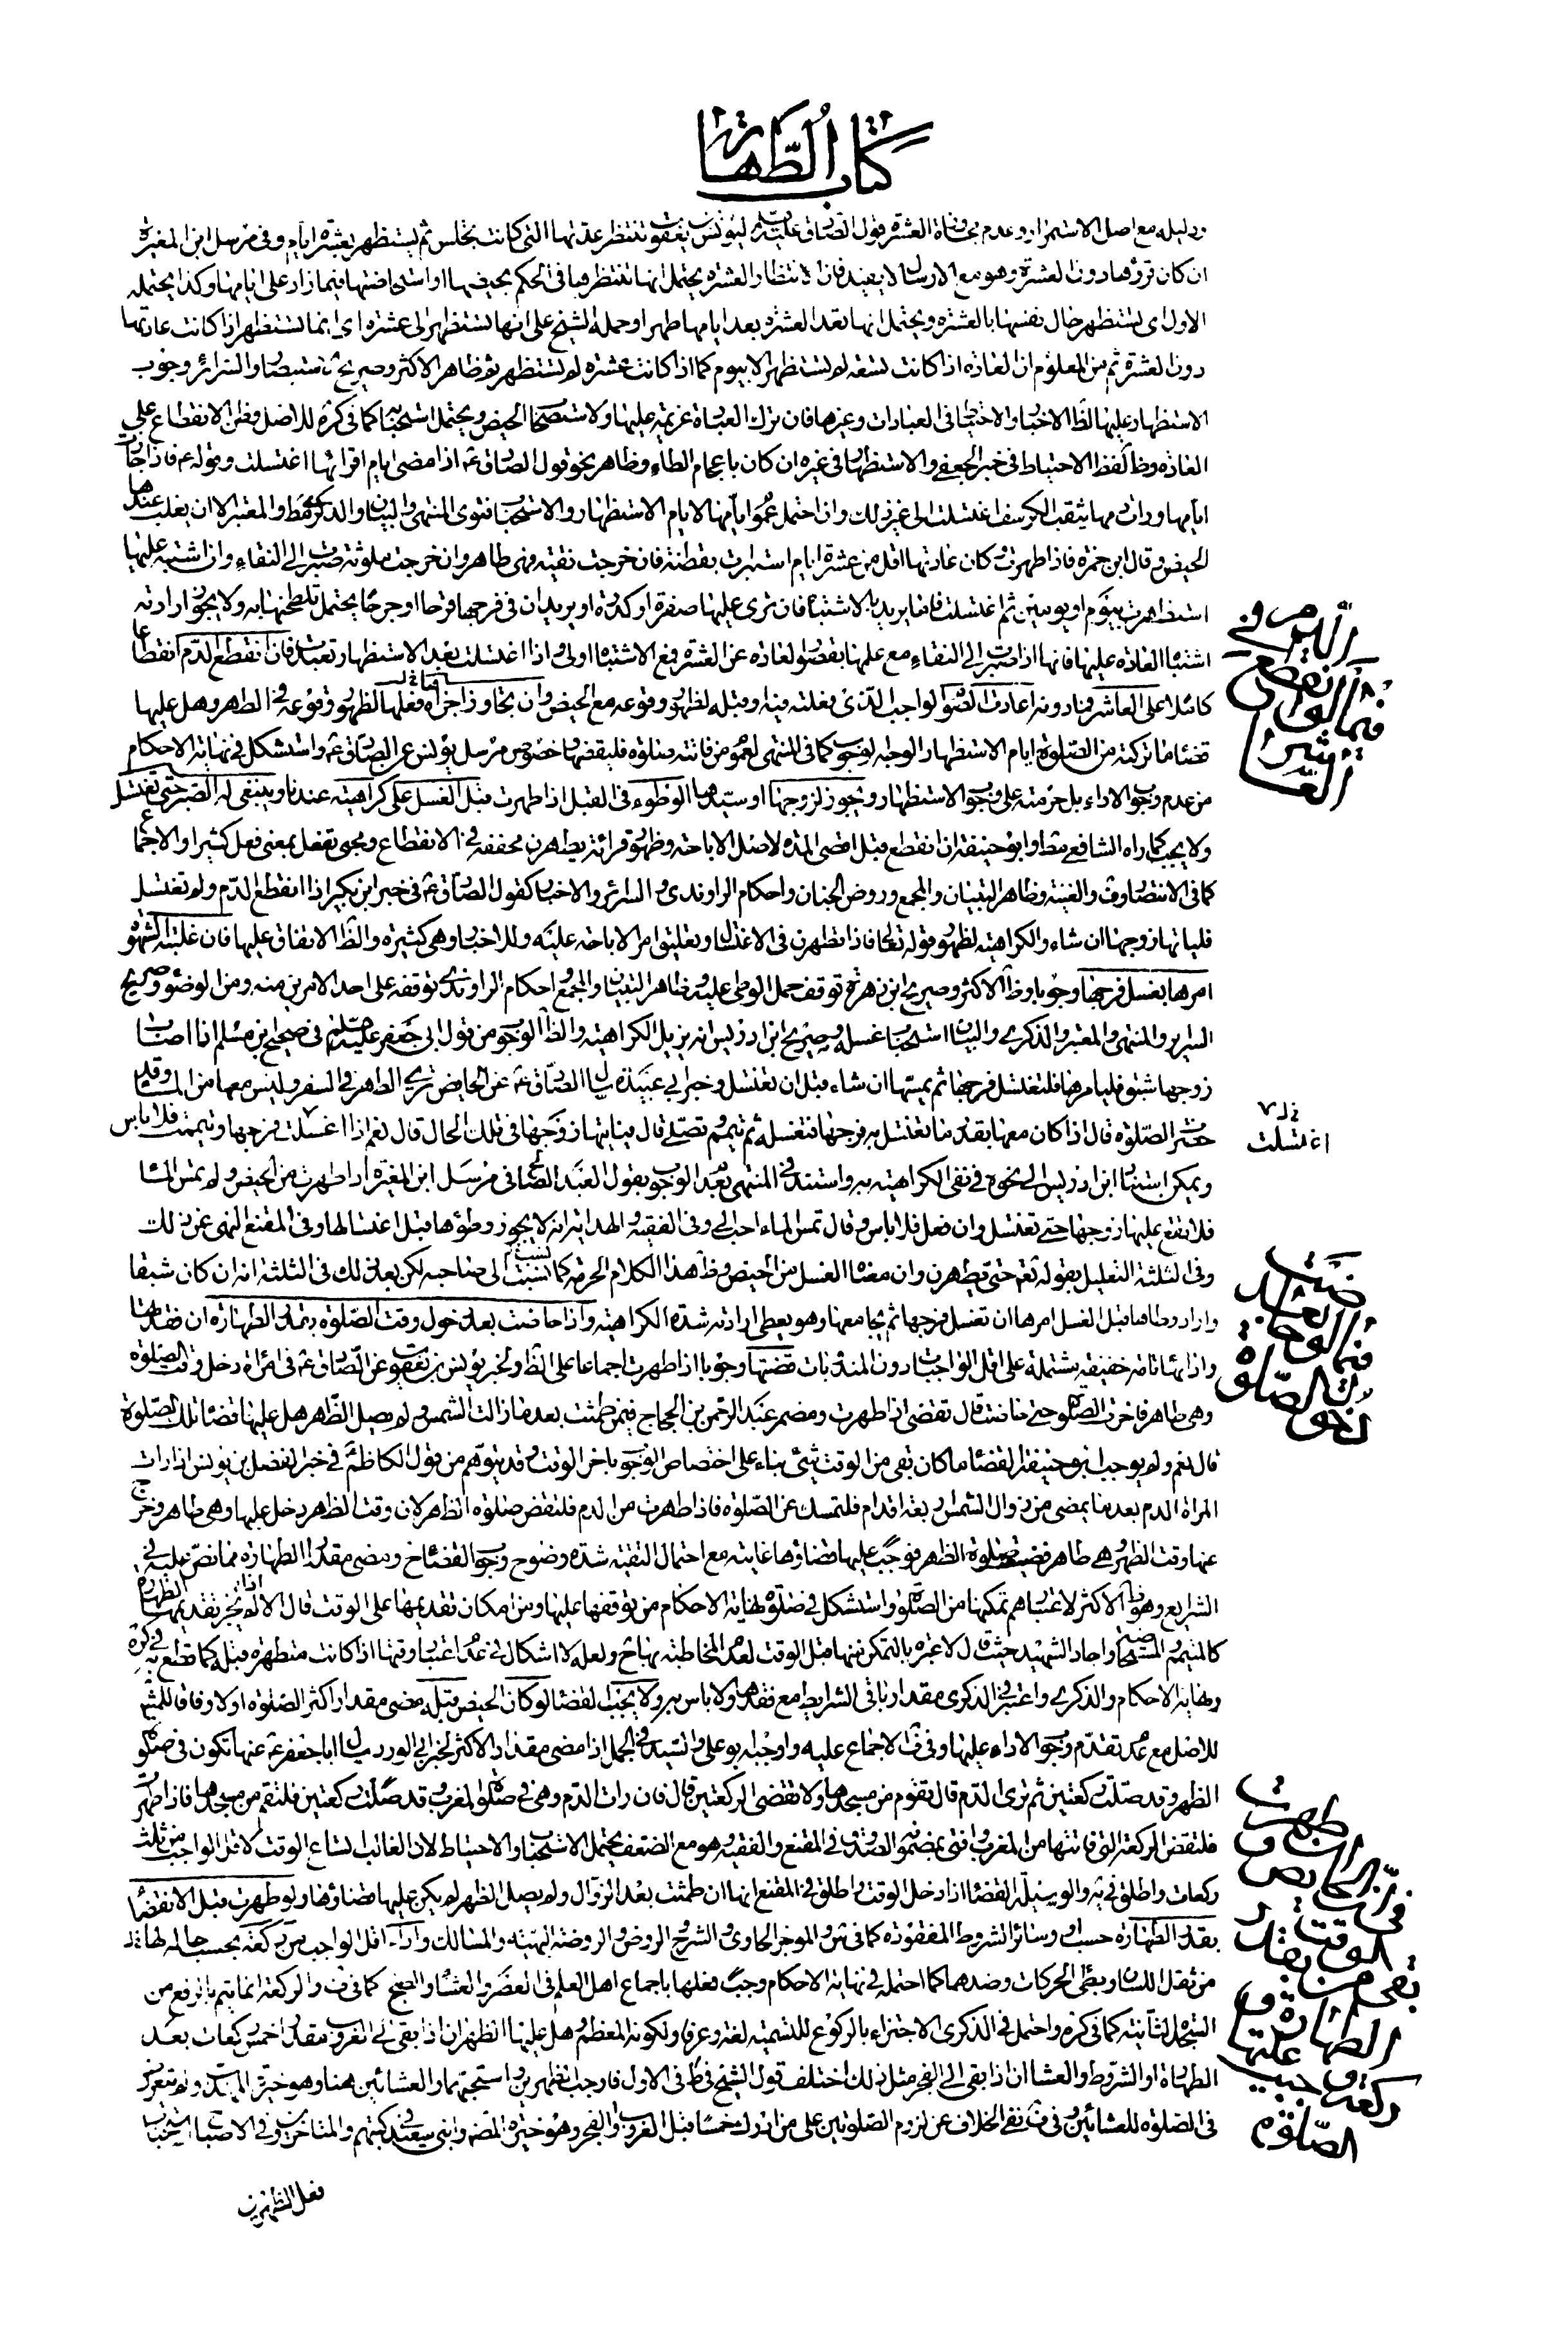 كتاب الطهارة
ودليله مع اصل الاستمرار وعدم مجاوزة العشرة قول الصادق عليه السلم ليونس بن يعقوب تنتظر عدتها التي كانت تجلس ثم يستظهر بعشرة ايام وفي مرسل ابن المغيرة
ان كان قرؤها دون العشرة وهو مع الارسال لا يفيد فان انتظار العشرة يحتمل انها تنتظر فيها في الحكم بحيضها او استحاضتها فيما زاد على ايامها وكذا يحتمله
الاول اى تستظهر حال نفسها بالعشرة ويحتمل انها بعد العشرة بعد ايامها طهر او حمله الشيخ على انها تستظهر الى عشرة اى انما تستظهر اذا كانت عادتها
دون العشرة ثم من المعلوم ان العادة اذا كانت تسعة لم تستظهر الا بيوم كما اذا كانت عشرة لم تستظهر ثم ظاهر الاكثر وصريح الاستبصار والسرائر وجوب
الاستظهار عليها لظ الاخبار والاحتياط في العبادات وغيرها فان ترك العبادة عزيمة عليها ولاستصحاب الحيض ويحتمل استحبابه كما في كره للاصل وظن الانقطاع على
العادة وظ لفظ الاحتياط في خبر الجعفي والاستظهار في غيره ان كان باعجام الطاء وظاهر نحو قول الصادق ع اذا مضى ايام اقرائها اغتسلت وقوله ع فاذا جازت
ايامها ورات دمها يثقب الكرسف اغتسلت الى غير ذلك وان احتمل عموم ايامها لايام الاستظهار والاستحباب فتوى المنتهى والبيان والذكرى وط والمعتبر الا ان يغلب عندها
الحيض وقال ابن حمزة فاذا طهرت وكان عادتها اقل من عشرة ايام استبرات بقطنة فان خرجت نقية فهى طاهر وان خرجت ملوثة صبرت الى النقاء وان اشتبه عليها
استظهرت بيوم او يومين ثم اغتسلت فاما يريد بالاشتباه فان ترى عليها صفرة او كدرة او يريد ان في فرجها قرحا او جرحا يحتمل تلطخها به ولا يجوز ارادته
اشتباه العادة عليها فانها اذا صبرت الى النقاء مع علمها بقصور العادة عن العشرة فمع الاشتباه اولى واذا اغتسلت بعد الاستظهار وتعبدت فان انقطع الدم انقطاعا
كاملا على العاشر فما دونه اعادت الصوم الواجب الذى فعلته فيه وقبله لظهور وقوعه مع الحيض وان تجاوز اجزاه فعلها لظهور وقوعه في الطهر وهل عليها
قضاء ما تركته من الصلوة ايام الاستظهار الوجه الوجوب كما في المنتهى لعموم من فاتته صلوة فليقضها وخصوص مرسل يونس عن الصادق ع واستشكل في نهاية الاحكام
من عدم وجوب الاداء بل حرمته على وجوب الاستظهار ويجوز لزوجها او سيدها الوطوء في القبل اذا طهرت قبل الغسل على كراهية عندنا وينبغى له الصبر حتى تغتسل
ولا يجب كما راه الشافعي مط وابو حنيفة ان انقطع قبل اقصى المدة لاصل الاباحة وظهور قراءة يطهرن مخففة في الانقطاع ومجئ تفعل بمعنى فعل كثيرا والاجماع
كما في الانتصار وف والغنية وظاهر التبيان والمجمع وروض الجنان واحكام الراوندى والسرائر والاخبار كقول الصادق ع في خبر ابن بكير اذا انقطع الدم ولم تغتسل
فلياتها زوجها ان شاء والكراهية لظهور قوله تعالى فاذا تطهرن في الاغتسال وتعليق امر الاباحة عليه وللاخبار وهي كثيرة والظ الاتفاق عليها فان غلبته الشهوة
امرها بغسل فرجها وجوبا وظ الاكثر وصريح ابن زهرة توقف حل الوطى عليه وظاهر التبيان والمجمع واحكام الراوندى توقفه على احد الامرين منه ومن الوضوء وصريح
السرائر والمنتهى والمعتبر والذكرى والبيان استحباب غسله وصريح ابن ادريس انه يزيل الكراهية والظ الوجوب من قول ابي جعفر عليه السلم في صحيح ابن مسلم اذا اصاب
زوجها شبق فليامرها فلتغتسل فرجها ثم يمسها ان شاء قبل ان تغتسل وخبر ابي عبيدة سال الصادق ع عن الحايض ترى الطهر في السفر وليس معها من الماء وقد
حضرت الصلوة قال اذا كان معها بقدر ما تغتسل به فرجها فتغسله ثم تيمم وتصلى قال فياتيها زوجها في تلك الحال قال نعم اذا اغسلت فرجها وتيممت فلا باس
ويمكن استناد ابن ادريس الى نحوه في نفى الكراهية به واستند في المنتهى بعد الوجوب بقول العبد الصالح في مرسل ابن المغيرة اذا طهرت من الحيض ولم تمس الماء
فلا يقع عليها زوجها حتى تغتسل وان فعل فلا باس وقال تمس الماء احب الى وفي الفقيه والهداية انه لا يجوز وطؤها قبل اغتسالها وفي المقنع النهى عن ذلك
وفي الثلثة التعليل بقوله تعالى حتى يطهرن وان معناه الغسل من الحيض وظ هذا الكلام الحرمة كما نسبت الى صاحبه لكن بعد ذلك في الثلثة انه ان كان شبقا
واراد وطاها قبل الغسل امرها ان تغسل فرجها ثم يجامعها وهو يعطى ارادته شدة الكراهية واذا حاضت بعد دخول وقت الصلوة بقدر الطهارة ان فقدتها
واداءها تامة خفيفة مشتملة على اقل الواجبات دون المندوبات قضتها وجوبا اذا طهرت اجماعا على الظ ولخبر يونس بن يعقوب عن الصادق ع في امراة دخل وقت الصلوة
وهي طاهر فاخرت الصلوة حتى حاضت قال تقضى اذا طهرت ومضمر عبد الرحمن بن الحجاج فيمن طمثت بعد ما زالت الشمس ولم تصل الظهر هل عليها قضاء تلك الصلوة
قال نعم ولم يوجب ابو حنيفة القضاء ما كان بقى من الوقت شئ بناء على اختصاص الوجوب باخر الوقت وقد يتوهم من قول الكاظم ع في خبر الفضل بن يونس اذا رات
المراة الدم بعد ما يمضى من زوال الشمس اربعة اقدام فلتمسك عن الصلوة فاذا طهرت من الدم فلتقض صلوة الظهر لان وقت الظهر دخل عليها وهي طاهر وخرج
عنها وقت الظهر وهي طاهر فضيعت صلوة الظهر فوجب عليها قضاؤها غايته مع احتمال التقية شدة وضوح وجوب القضاء ح ومضى مقدار الطهارة مما نص عليه في
الشرايع وهو ظ الاكثر لاعتبارهم تمكنها من الصلوة واستشكل في صلوة نهاية الاحكام من توقفها عليها ومن امكان تقديمها على الوقت قال الا اذا لم يجز تقديم الطهارة
كالمتيمم والمستحاضة واجاد الشهيد حيث قال لا عبرة بالتمكن منها قبل الوقت لعدم المخاطبة بها ح ولعله لا اشكال في عدم اعتبار وقتها اذا كانت متطهرة قبله كما قطع به في كره
ونهاية الاحكام والذكرى واعتبر في الذكرى مقدار باقي الشرايط مع فقدها ولا باس به ولا يجب القضاء لو كان الحيض قبله مضى مقدار اكثر الصلوة او لا وفاقا للمشهور
للاصل مع عدم تقدم وجوب الاداء عليها وفي ف الاجماع عليه واوجبه ابو على والسيد في الجمل اذا مضى مقدار الاكثر لخبر ابي الورد سال ابا جعفر ع عنها تكون في صلوة
الظهر وقد صلت ركعتين ثم ترى الدم قال تقوم من مسجدها ولا تقضى الركعتين قال فان رات الدم وهي في صلوة المغرب وقد صلت ركعتين فلتقم من مسجدها فاذا طهرت
فلتقض الركعة التي فاتتها من المغرب وافتى بمضمونه الصدوق في المقنع والفقيه وهو مع الضعف يحتمل الاستحباب والاحتياط لان الغالب اتساع الوقت لاقل الواجب من ثلث
ركعات واطلق في يه والوسيلة القضاء اذا دخل الوقت واطلق في المقنع انها ان طمثت بعد الزوال ولم يصل الظهر لم يكن عليها قضاؤها ولو طهرت قبل الانقضاء
بقدر الطهارة حسب او وسائر الشروط المفقودة كما في س والموجز الحاوي والشروح الروض والروضة البهية والمسالك واداء اقل الواجب من ركعة بحسب حالها
من ثقل اللسان وبطء الحركات وضدهما كما احتمله في نهاية الاحكام وجب فعلها باجماع اهل العلم في العصر والعشاء والصبح كما في ف والركعة انما يتم بالرفع من
السجدة الثانية كما في كره واحتمل في الذكرى الاجتزاء بالركوع للتسمية لغة وعرفا ولكونه المعظم وهل عليها الظهران اذا بقى الى الغروب مقدار خمس ركعات بعد
الطهارة او الشروط والعشاءان اذا بقى الى الفجر مثل ذلك اختلف قول الشيخ في ط في الاول فاوجب الظهرين واستحبهما والعشائين هنا وهو خيرة المهذب ولم يتعرض
في الصلوة للعشائين وفي ف نفى الخلاف عن لزوم الصلوتين على من ادرك خمسا قبل الغروب والفجر وهو خيرة المصنف وابنى سعيد في كتبهم والمتاخرين وفي الاصباح استحباب
فعل الظهرين
الكلام في
فيما لو انقطع
العاشر
اغتسلت
فيما لو حاضت بعد
دخول الصلوة
في ان الحايض ان طهرت
وقد بقى من الوقت بقدر
الطهارة و
ركعة وجب عليها
الصلوة